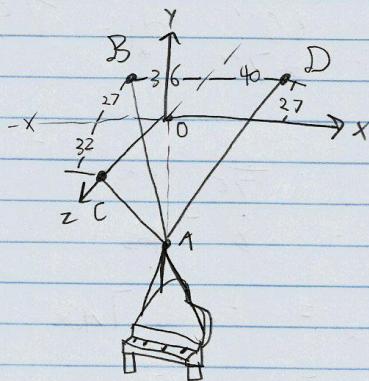 Y
B 36 40 D
27 27
-X O X
32
Z C
A